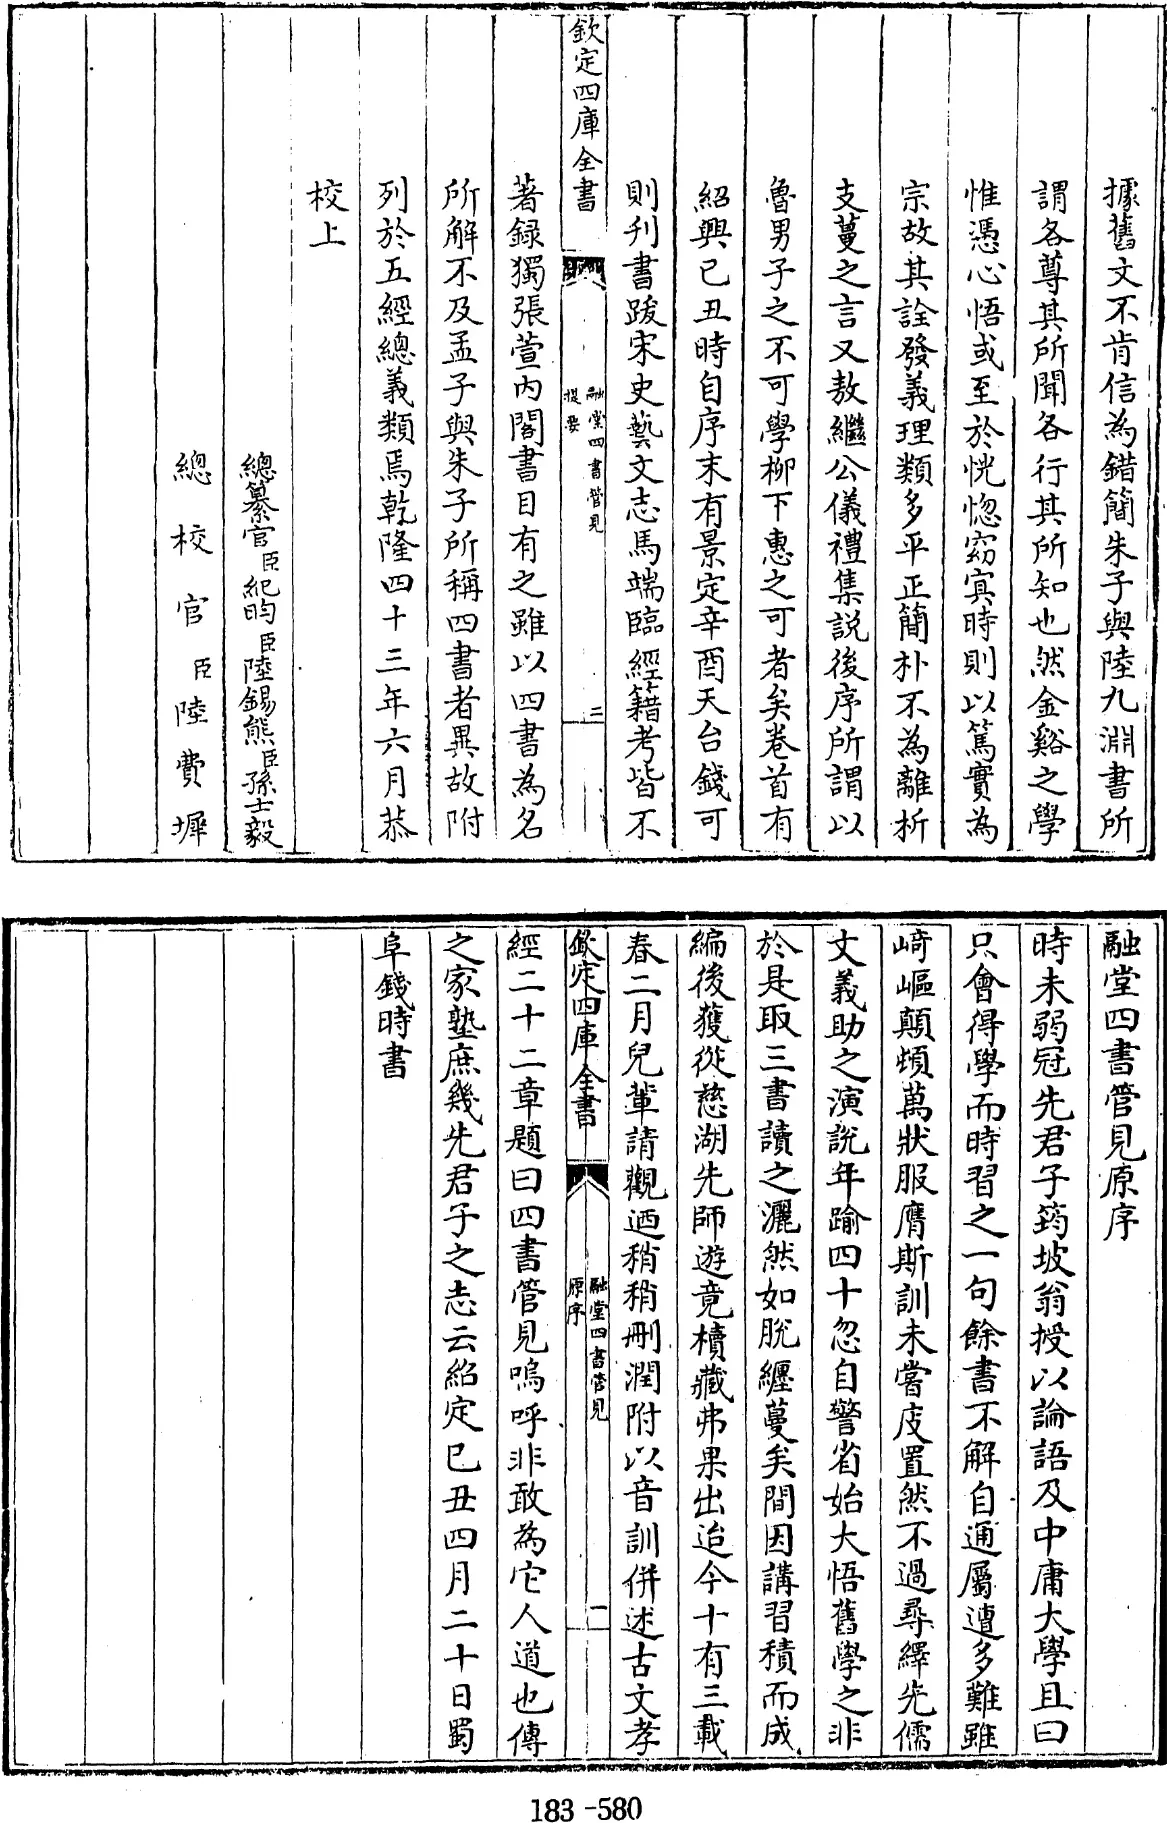 據舊文不肯信為錯簡朱子與陸九淵書所
謂各尊其所聞各行其所知也然金谿之學
惟憑心悟或至於恍惚窈冥時則以篤實為
宗故其詮發義理類多平正簡朴不為離析
支蔓之言又敖繼公儀禮集説後序所謂以
魯男子之不可學柳下惠之可者矣卷首有
紹興已丑時自序末有景定辛酉天台錢可
則刋書䟦宋史藝文志馬端臨經籍考皆不
欽定四庫全書
融堂四書管見
提要
三
著録獨張萱内閣書目有之雖以四書為名
所解不及孟子與朱子所稱四書者異故附
列於五經總義類焉乾隆四十三年六月恭
校上
總纂官臣紀昀臣陸錫熊臣孫士毅
總校官臣陸費墀
融堂四書管見原序
時未弱冠先君子筠坡翁授以論語及中庸大學且曰
只會得學而時習之一句餘書不解自通屬遭多難雖
崎嶇顛頓萬狀服膺斯訓未嘗庋置然不過尋繹先儒
文義助之演説年踰四十忽自警省始大悟舊學之非
於是取三書讀之灑然如脱纒蔓矣間因講習積而成
編後獲從慈湖先師遊竟櫝藏弗果出迨今十有三載
春二月兒輩請觀迺稍稍刪潤附以音訓併述古文孝
欽定四庫全書
融堂四書管見
原序
一
經二十二章題曰四書管見嗚呼非敢為它人道也傳
之家塾庶幾先君子之志云紹定已丑四月二十日蜀
阜錢時書
183-580